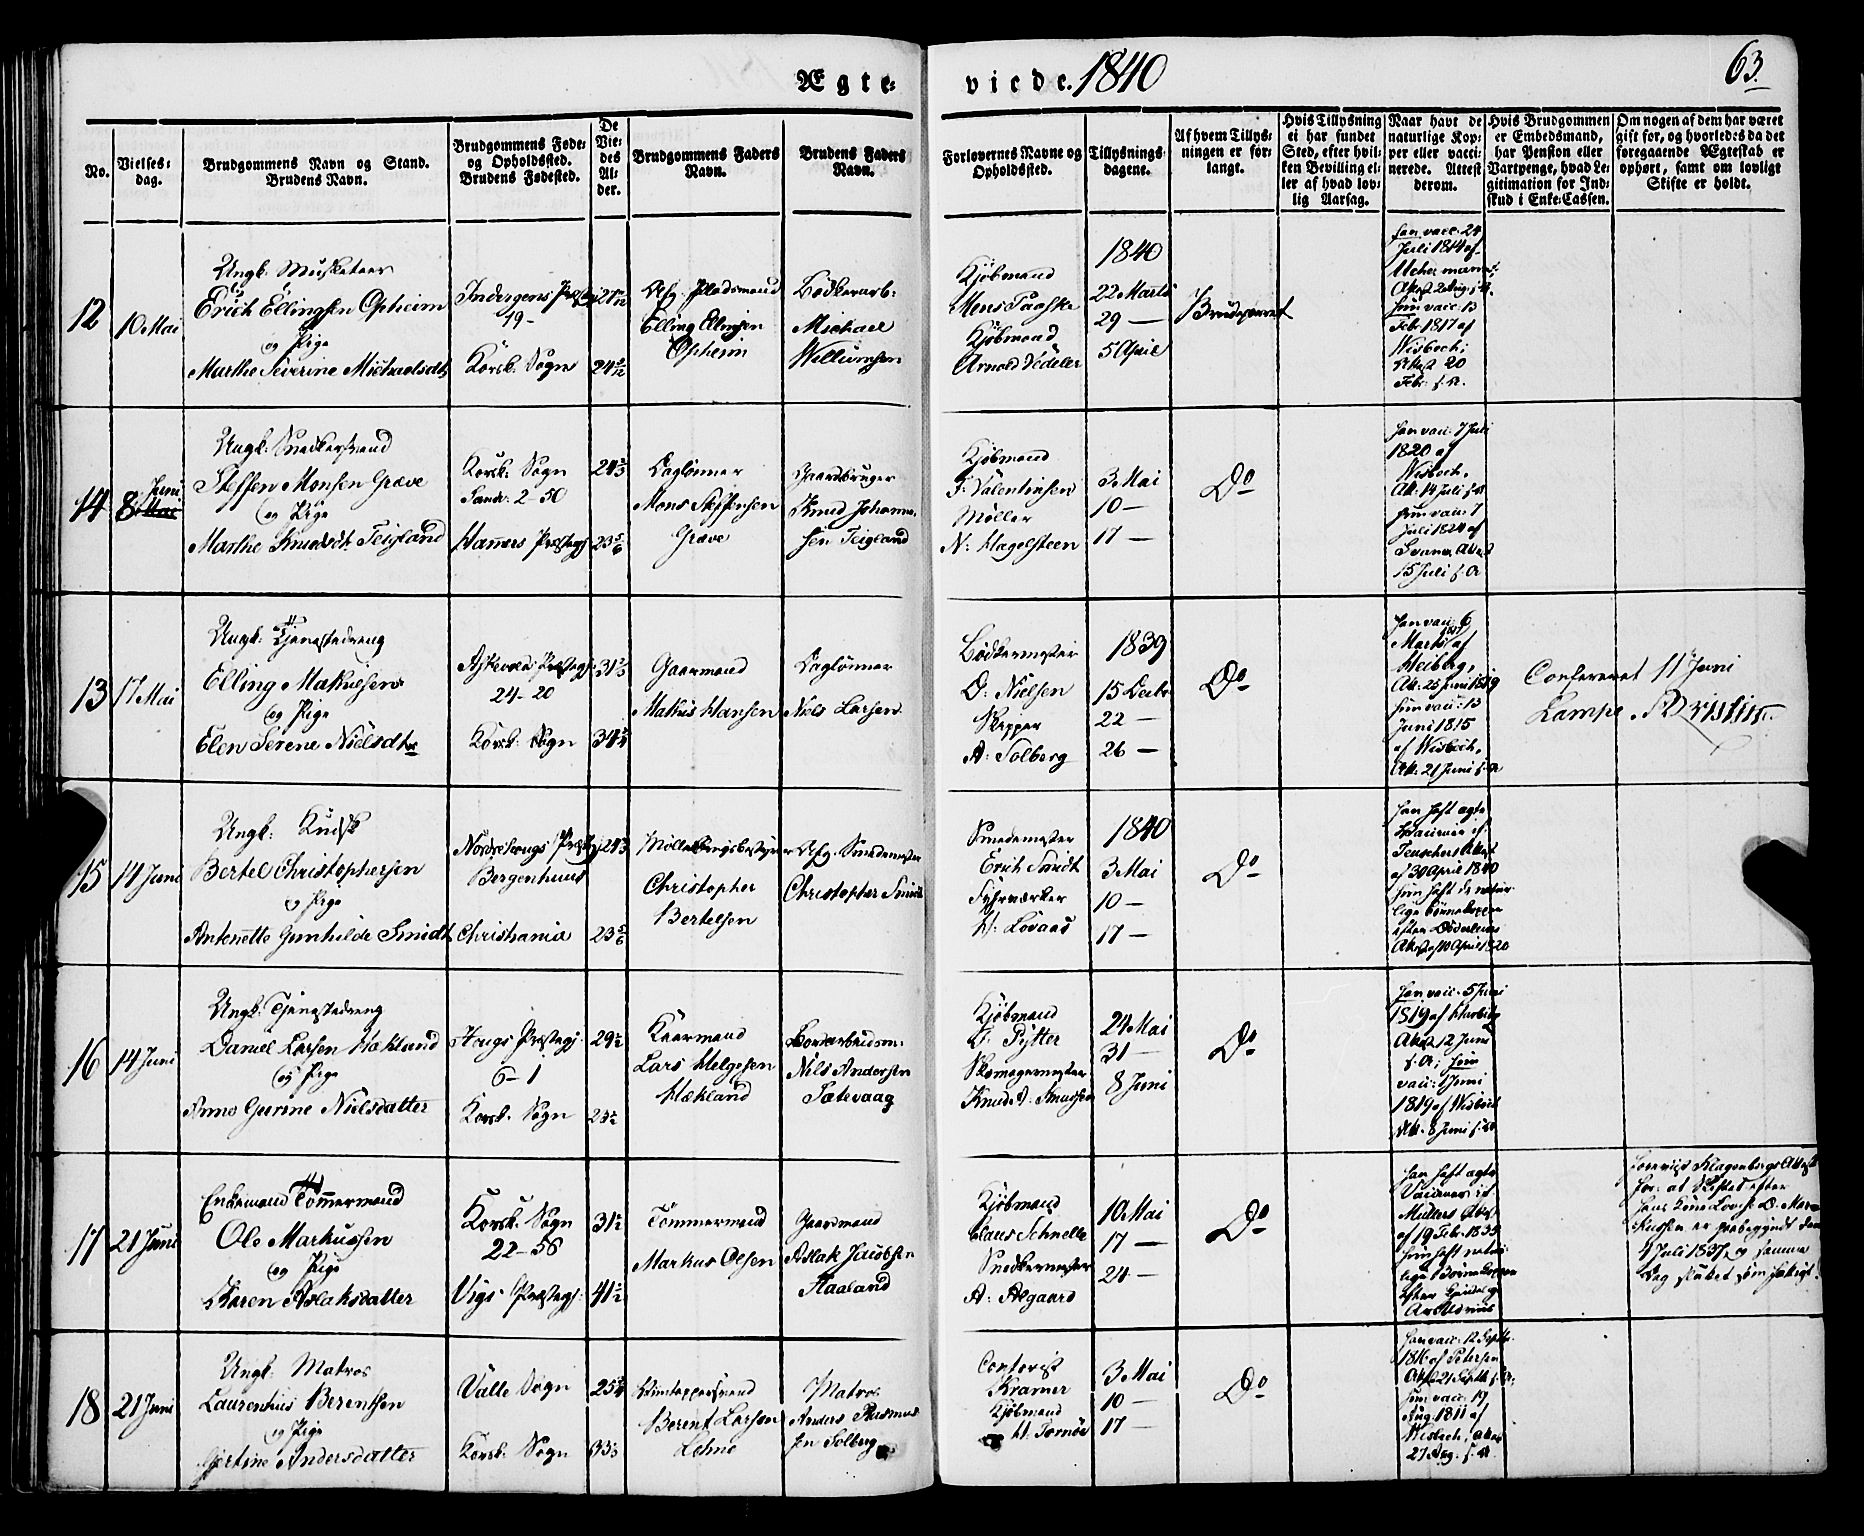 Ægte- viede. 1840
63.
No.
Vielses-
dag.
Brudgommens Navn og Stand.
Brudens Navn.
Brudgommens Føde-
og Opholdssted.
Brudens Fødested.
De
Vie-
des
Al-
der.
Brudgommens Faders
Navn.
Brudens Faders
Navn.
Forlovernes Navne og
Opholdssted.
Tillysnings-
dagene.
Af hvem Tillys-
ningen er for-
langt.
Hvis Tillysning
ei har fundet
Sted, efter hvil-
ken Bevilling el-
ler af hvad lov-
lig Aarsag.
Naar havt de
naturlige Kop-
per eller vacci-
nerede. Attest
derom.
Hvis Brudgommen
er Embedsmand,
har Pension eller
Vartpenge, hvad Le-
gitimation for Ind-
skud i Enke-Cassen.
Om nogen af dem har været
gift før, og hvorledes da det
foregaaende Ægteskab er
ophørt, samt om lovligt
Skifte er holdt.
12
10 Mai
Ungk: Musketeer
Erich Ellingsen Opheim
og Pige
Marthe Severine Michaelsdt
19-
Korsk: Sogn
Afg. Pladsmand
Elling Ellingsen
Opheim
Bødkerarb:
Michael
Willumsen
Kjøbmand
Mons Paaske
Kjøbmand
Arnold Vedeler
1840
22 Marts
29 —
5 April
Brudeparret
han vacc: 24
Juli 1814 af
hun vacc: 13
Febr. 1817 af
Wisbech;
Att. 20
Febr: s. A.
14
8 Juni
Ungk: Snedkersvend
Steffen Monsen Græve
og Pige
Marthe Knudsdt Teigland
Korsk: Sogn
Sandv: 2-50
Hammers Præstegj
Daglønner
Mons Steffensen
Græve
Gaardbruger
Knud Johanne-
sen Teigland
Kjøbmand
F: Valentinsen
Møller
N: Hagelsteen
3 Mai
10 —
17 —
Do
han vacc: 7 Juli
1820 af
Wisbech,
Att: 14 Juli s. A
hun vacc: 7
Juli 1824 af
15 Juli s. A
13
17 Mai
Ungk: Tjenestedreng
Elling Mathiesen
og Pige
Elen Serene Nielsdtr
Askevolds Præstegj
24-20
Korsk: Sogn
Gaarmand
Mathis Hansen
Daglønner
Niels Larsen
Bødkermester
O: Nielsen
Skipper
A: Solberg
1839
15 Decbr
22 —
26 —
Do
han vacc: 6
Marts af
Heiberg,
Att. 25 Juni 1839
hun vacc: 13
Juni 1815
af Wisbech,
Att. 21 Juni s. A
Confereret 11te Juni
Lampe
15
14 Juni
Ungk: Kudsk
Bertel Christophersen
og Pige
Antonette Gunhilde Smidt
Bergenhuus
Christiania
Christopher
Bertelsen
Afg. Smedemester
Christopher Smidt
Smedemester
Erich Smidt
Fyrværker
H: Lovaas
1840
3 Mai
10 —
17 —
Do
han haft ægte
Vacciner if.
Teuschers Attest
af 30 April 1840
hun haft de natur-
lige Børnekopper
Attest af 10 April 1820
16
14 Juni
Ungk: Tjenestedreng
Daniel Larsen Hækland
og Pige
Anne Gurine Nielsdatter
Haugs Præstegj:
6-1
Korsk: Sogn
29½
23½
Kaarmand
Lars Helgesen
Hækland
Bordarbeidsm:
Nils Andersen
Tætevaag
Kjøbmand
D: Pytter
Skomagermester
Knud A: Knudsen
24 Mai
31 —
8 Juni
Do
han vacc: 5 Juni
1819 af
Att. 12 Juni
s. A; hun
vacc: 1 Juni
1819 af Wisbech
Att. 8 Juni s. A
17
21 Juni
Enkemand Tømmermand
Ole Markussen
og Pige
Karen Aslaksdatter
Korsk: Sogn
22-56
Vigs Præstegj:
31½
41½
Tømmermand
Markus Olsen
Gaardmand
Aslak Jacobsen
Haaland
Kjøbmand
Claus Schnelle
Snedkermester
A: Aagaard
10 Mai
17 —
24 —
Do
han haft ægte
Vacciner if.
Müllers Attest
af 19 Febr. 1835
hun haft natur-
lige Børnekopper
foreviist Klagenbergs Attest
for at Skiftet efter
hans Kone
kussen er paabegyndt den
4 Juli 1837, og samme
Dag sluttet
18
21 Juni
Ungk: Matros
Laurentius Berentsen
og Pige
Gjertine Andersdatter
Valle Sogn
Korsk: Sogn
Berent Larsen
Matros
Anders Rasmus-
sen Solberg
Contorist
Kramer
Kjøbmand
H. Tornøe
3 Mai
10 —
17 —
Do
han vacc: 12 Septbr.
1816 af Petersen
Att. 21 Septb s. A;
hun vacc: 19
Aug: 1811 af
Wisbech, Attest
27 Aug. s. A.